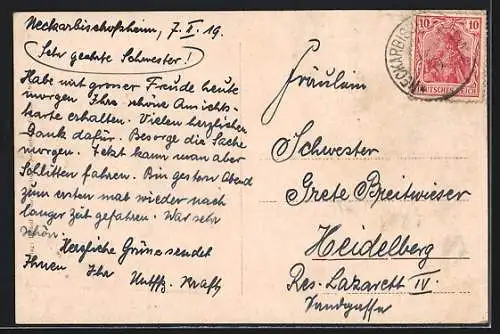 Neckarbischofsheim, 7. II. 19.
Sehr geehrte Schwester!
Habe mit grosser Freude heute
morgen Ihre schöne Ansichts-
karte erhalten. Vielen herzlichen
Dank dafür. Besorge die Sache
morgen. Jetzt kann man aber
Schlitten fahren. Bin gestern Abend
zum ersten mal wieder nach
langer Zeit gefahren. War sehr
schön.
Herzliche Grüsse sendet
Ihnen Ihr Uffz. Kraft
Fräulein
Schwester
Grete Breitwieser
Heidelberg
Res. Lazarett IV.
Sandgasse
10 10
DEUTSCHES REICH
NECKARBIS